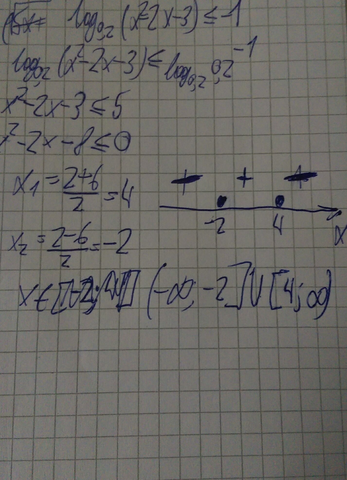 log₀,₂(x²-2x-3)≤-1
log₀,₂(x²-2x-3)≤log₀,₂0,2⁻¹
x²-2x-3≤5
x²-2x-8≤0
x₁=(2+6)/2=4
+ + +
-2 4 x
x₂=(2-6)/2=-2
x∈ (-∞;-2]∪[4;∞)